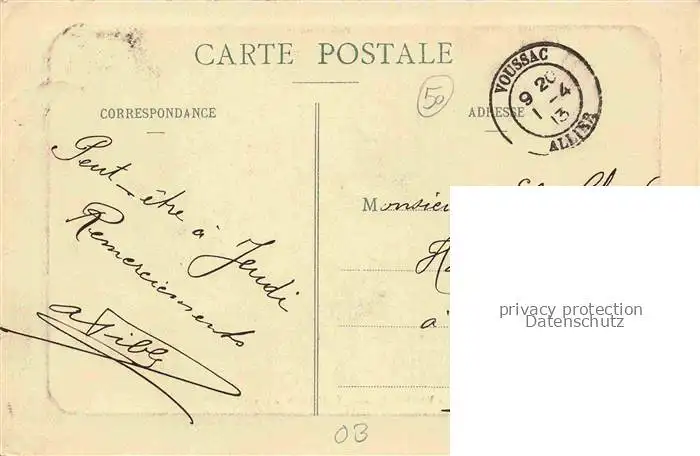 CARTE POSTALE
50
VOUSSAC
9 20
1 -4
13
ALLIER
CORRESPONDANCE
ADRESSE
Peut-être à Jeudi
Remerciements
Monsieu
à
privacy protection
Datenschutz
03